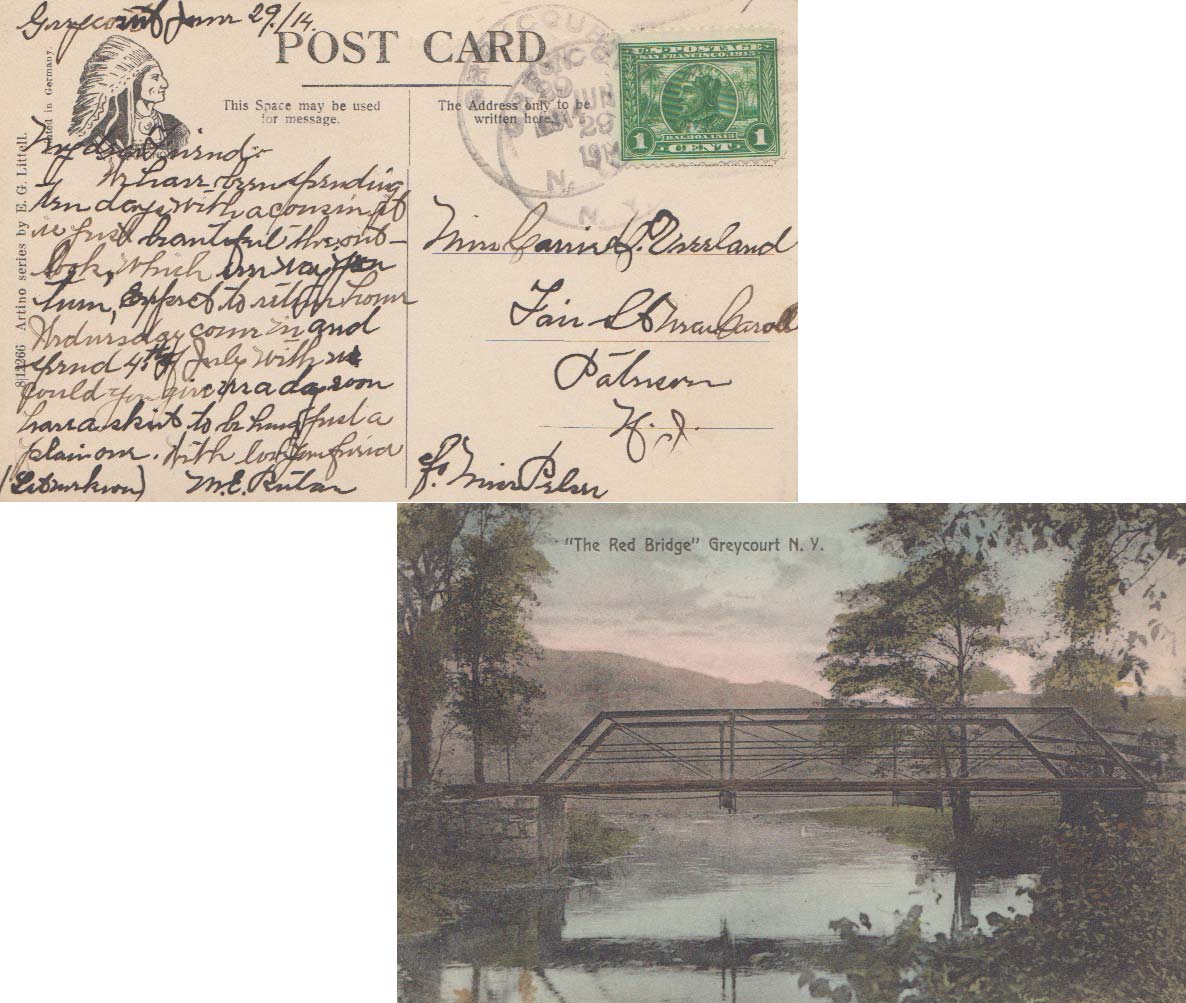 Greycourt June 29/14.
POST CARD
This Space may be used
for message.
The Address only to be
written here.
Printed in Germany.
Artino series by E. G. Littell.
U.S. POSTAGE
SAN FRANCISCO 1915
BALBOA 1513
1 CENT 1
JUN
29
1914
N.
My dear Friend:-
We have been spending
ten days with a cousin, it
is just beautiful the out-
look, which ever way you
turn, Expect to return home
Wednesday come in and
spend 4th of July with us
Could you give us a day soon
have a skirt to be hung just a
plain one. With love your friend
(Let us know) M.E. Rutan
Miss Carrie L. Everland
Fair St Near Caroll
Paterson
N.J.
Miss Pelser
"The Red Bridge" Greycourt N. Y.